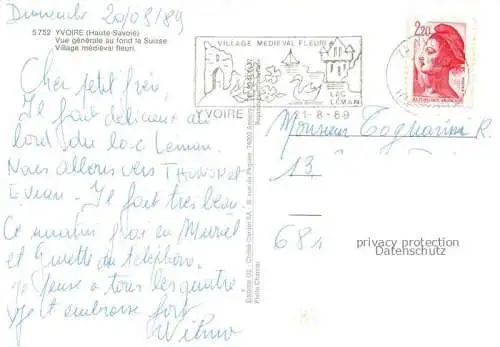 Dimanche 20/08/89
5 752 YVOIRE (Haute-Savoie)
Vue générale au fond la Suisse
Village médiéval fleuri.
Cher petit frère
Il fait délicieux au
bord du lac Leman.
Nous allons vers THONON et
EVIAN. Il fait très beau.
Ce matin j'ai eu Muriel
et Ginette au téléphone.
Je pense à tous les quatre
et embrasse fort
Wilma
VILLAGE MEDIEVAL FLEURI
LAC
LEMAN
YVOIRE
21-8-89
2,20
REPUBLIQUE FRANCAISE
Monsieur Tagliarini R.
13
681
privacy protection
Datenschutz